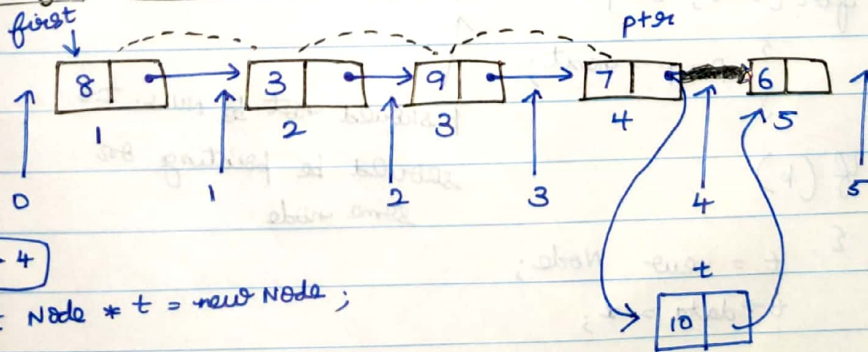 first
ptr
8 3 9 7 6
1 2 3 4 5
0 1 2 3 4 5
4
t
Node * t = new Node ;
10